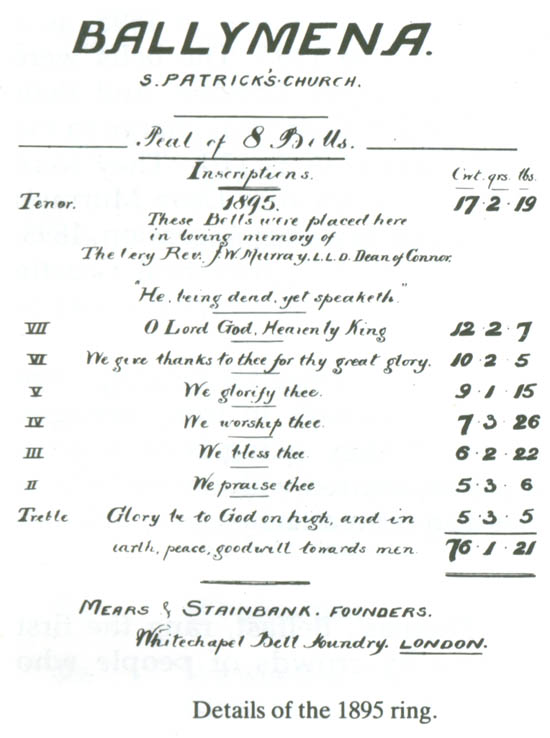 BALLYMENA.
S. PATRICK'S CHURCH.
Peal of 8 Bells.
Inscriptions. Cwt. qrs. lbs.
Tenor. 1895. 17 · 2 · 19
These Bells were placed here
in loving memory of
The Very Rev. J. W. Murray, L.L.D. Dean of Connor.
"He, being dead, yet speaketh."
VII O Lord God, Heavenly King 12 · 2 · 7
VI We give thanks to thee for thy great glory. 10 · 2 · 5
V We glorify thee. 9 · 1 · 15
IV We worship thee. 7 · 3 · 26
III We bless thee 6 · 2 · 22
II We praise thee 5 · 3 · 6
Treble Glory be to God on high, and in 5 · 3 · 5
earth, peace, goodwill towards men. 76 · 1 · 21
MEARS & STAINBANK. FOUNDERS.
Whitechapel Bell Foundry. LONDON.
Details of the 1895 ring.